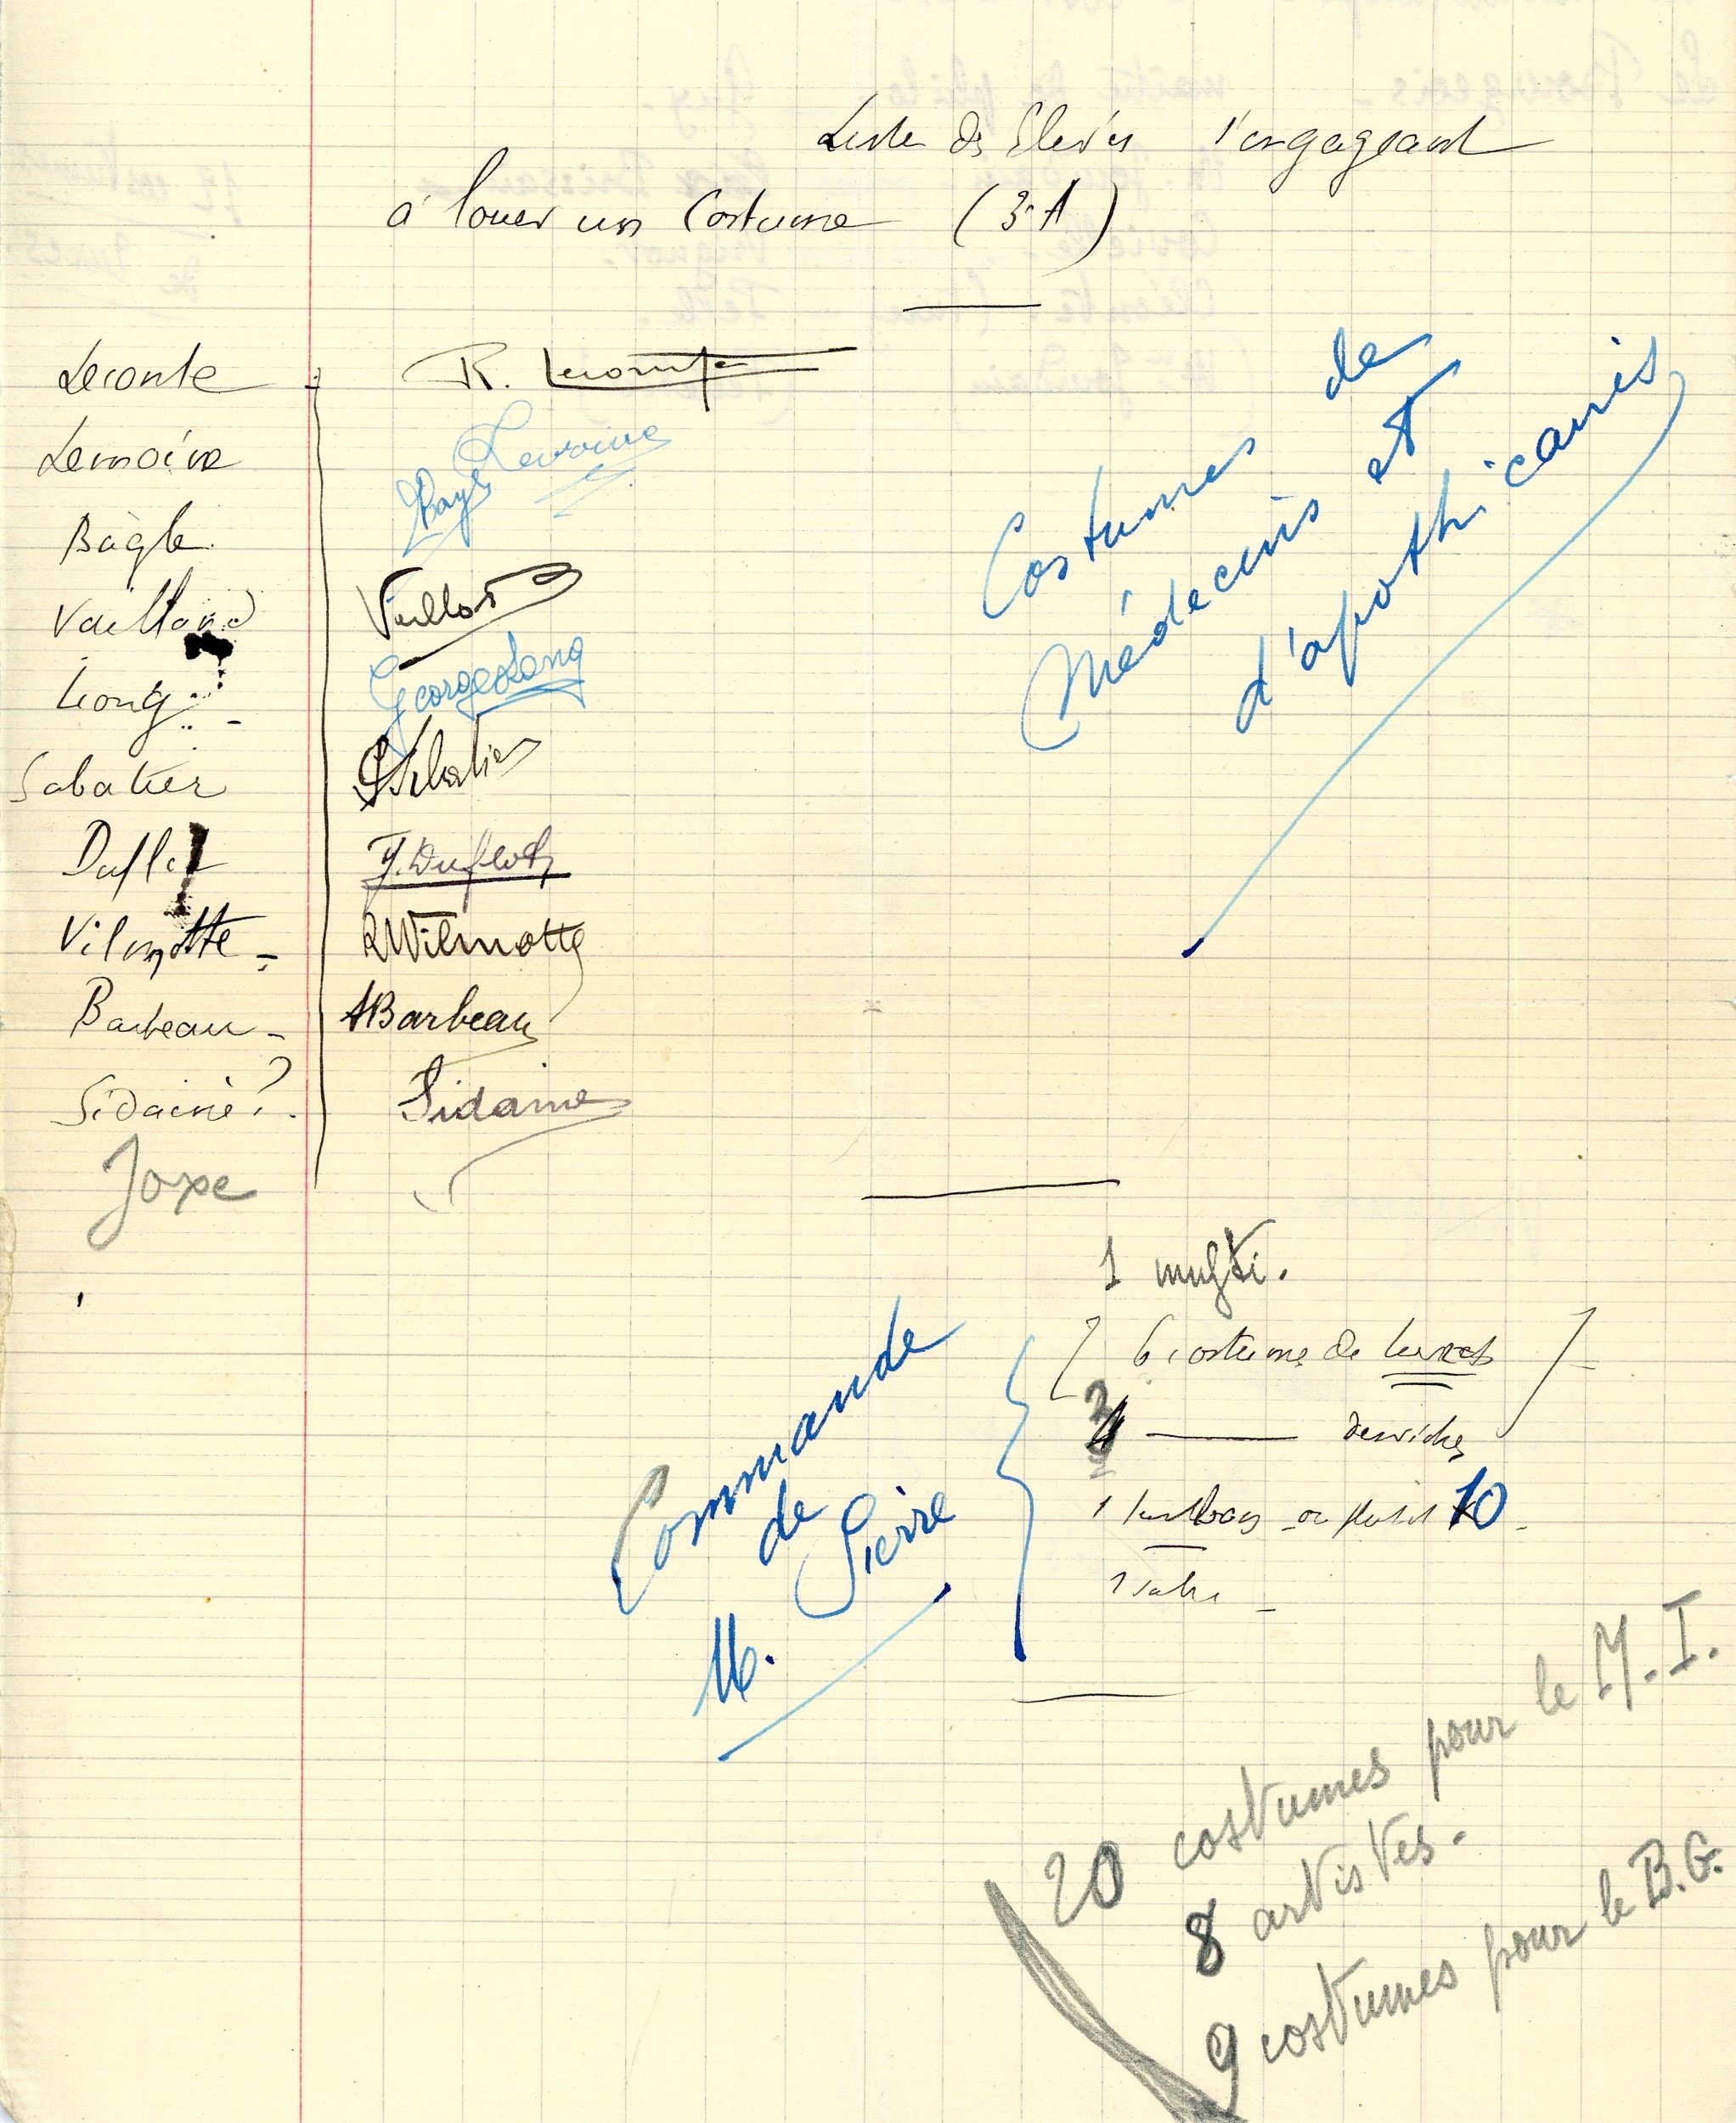 Liste des Elèves s'engageant
à louer un Costume (3e A)
Leconte - R. Lecompte
Lemoine Lemoine
Bagle. Bagle
Vailland Vaillot
Long - George Lang
Sabatier Sabatier
Duflot F. Duflot
Vilmotte - R Wilmotte
Barbeau - A Barbeau
Sidaine ? Sidaine
Joxe
Costumes de
Médecins et
d'apothicaires
1 mufti.
[ 6 costumes de turcs ]
3 ——— derviches
1 turban ou plutôt 10 -
1 sabre -
Commande
de
M. Pierre
20 costumes pour le M.I.
8 artistes.
9 costumes pour le B.G.